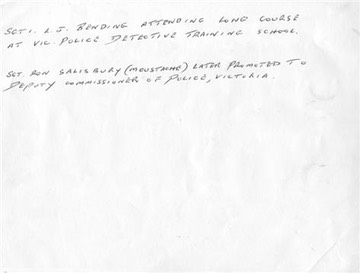 SGT 1. L.J. BENDING ATTENDING LONG COURSE
AT VIC. POLICE DETECTIVE TRAINING SCHOOL.
SGT. RON SALISBURY (MOUSTACHE) LATER PROMOTED TO
DEPUTY COMMISSIONER OF POLICE, VICTORIA.